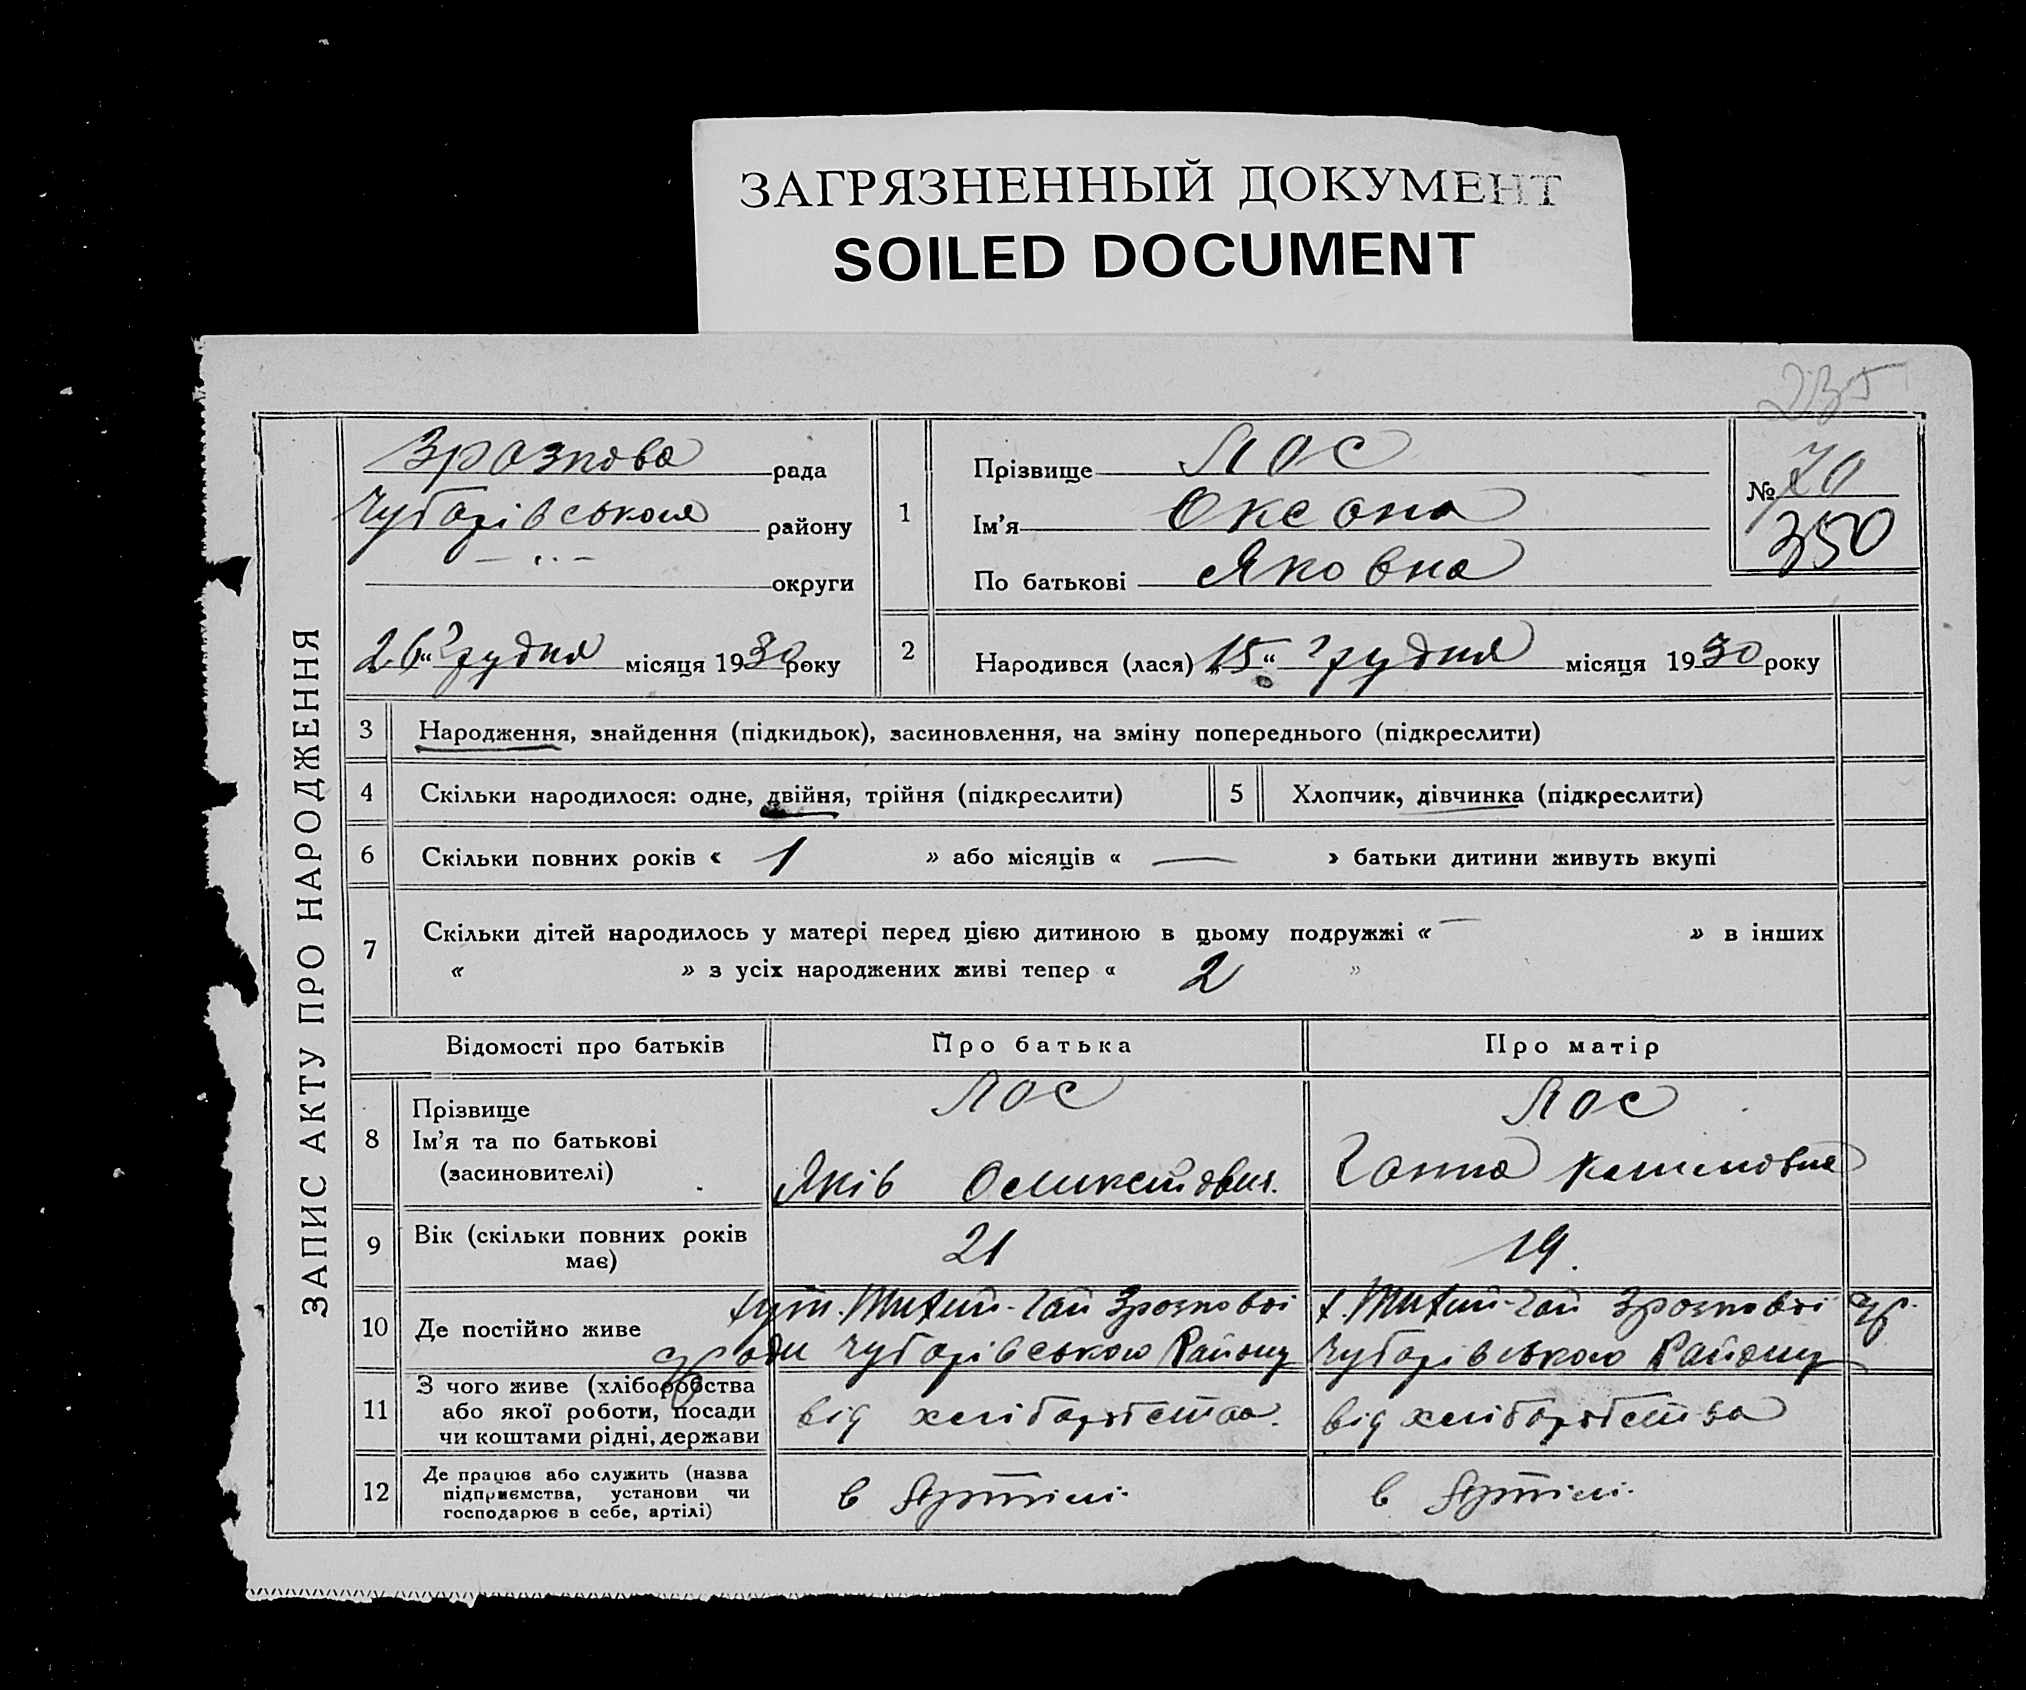 ЗАГРЯЗНЕННЫЙ ДОКУМЕНТ
SOILED DOCUMENT
235
ЗАПИС АКТУ ПРО НАРОДЖЕННЯ
Зразкова рада
Чубарівського району
— „ — округи
26 „ грудня місяця 1930 року
1
Прізвище Лос
Ім'я Оксана
По батькові Яковна
№ 70
350
2 Народився (лася) „15“ грудня місяця 1930 року
3 Народження, знайдення (підкидьок), засиновлення, на зміну попереднього (підкреслити)
4 Скільки народилося: одне, двійня, трійня (підкреслити) 5 Хлопчик, дівчинка (підкреслити)
6 Скільки повних років « 1 » або місяців « — » батьки дитини живуть вкупі
7 Скільки дітей народилось у матері перед цією дитиною в цьому подружжі « — » в інших
« » з усіх народжених живі тепер « 2 »
Відомості про батьків Про батька Про матір
8 Прізвище
Ім'я та по батькові
(засиновителі)
Лос
Яків
Лос
Ганна
9 Вік (скільки повних років
має)
21
19.
10 Де постійно живе
хут. Тихий-Гай Зразкової
ради Чубарівського Району
х. Тихий-Гай Зразкової с/р.
Чубарівського Району
11 З чого живе (хліборобства
або якої роботи, посади
чи коштами рідні, держави
від хліборобства.
від хліборобства
12 Де працює або служить (назва
підприємства, установи чи
господарює в себе, артілі)
в Артілі.
в Артілі.